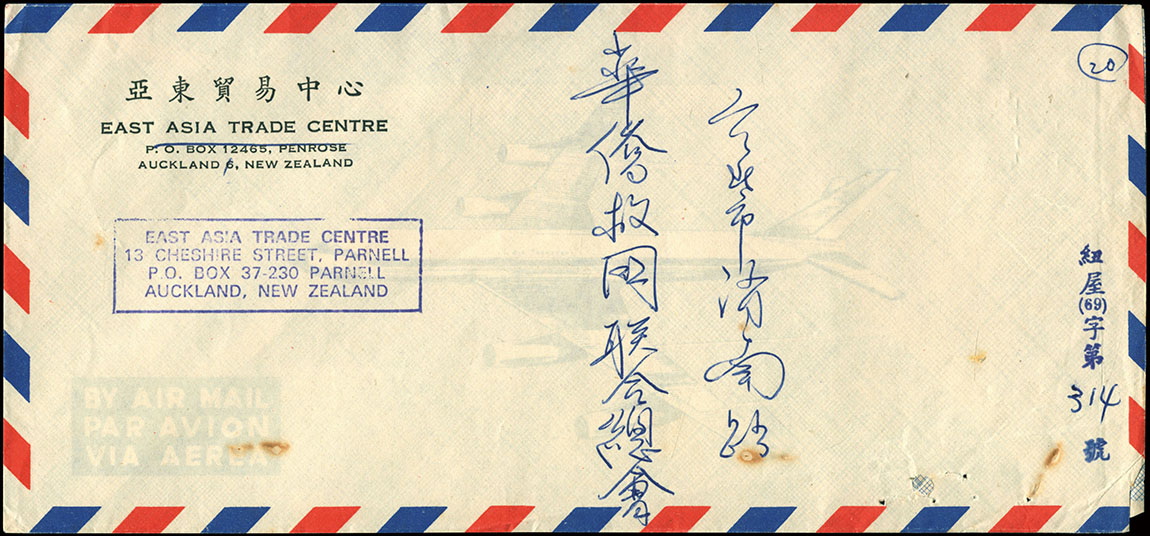 亞東貿易中心
EAST ASIA TRADE CENTRE
P. O. BOX 12465, PENROSE
AUCKLAND 6, NEW ZEALAND
EAST ASIA TRADE CENTRE
13 CHESHIRE STREET, PARNELL
P.O. BOX 37-230 PARNELL
AUCKLAND, NEW ZEALAND
BY AIR MAIL
PAR AVION
VIA AEREA
20
台北市濟南路
華僑救国联合總會
紐屋(69)字第314號